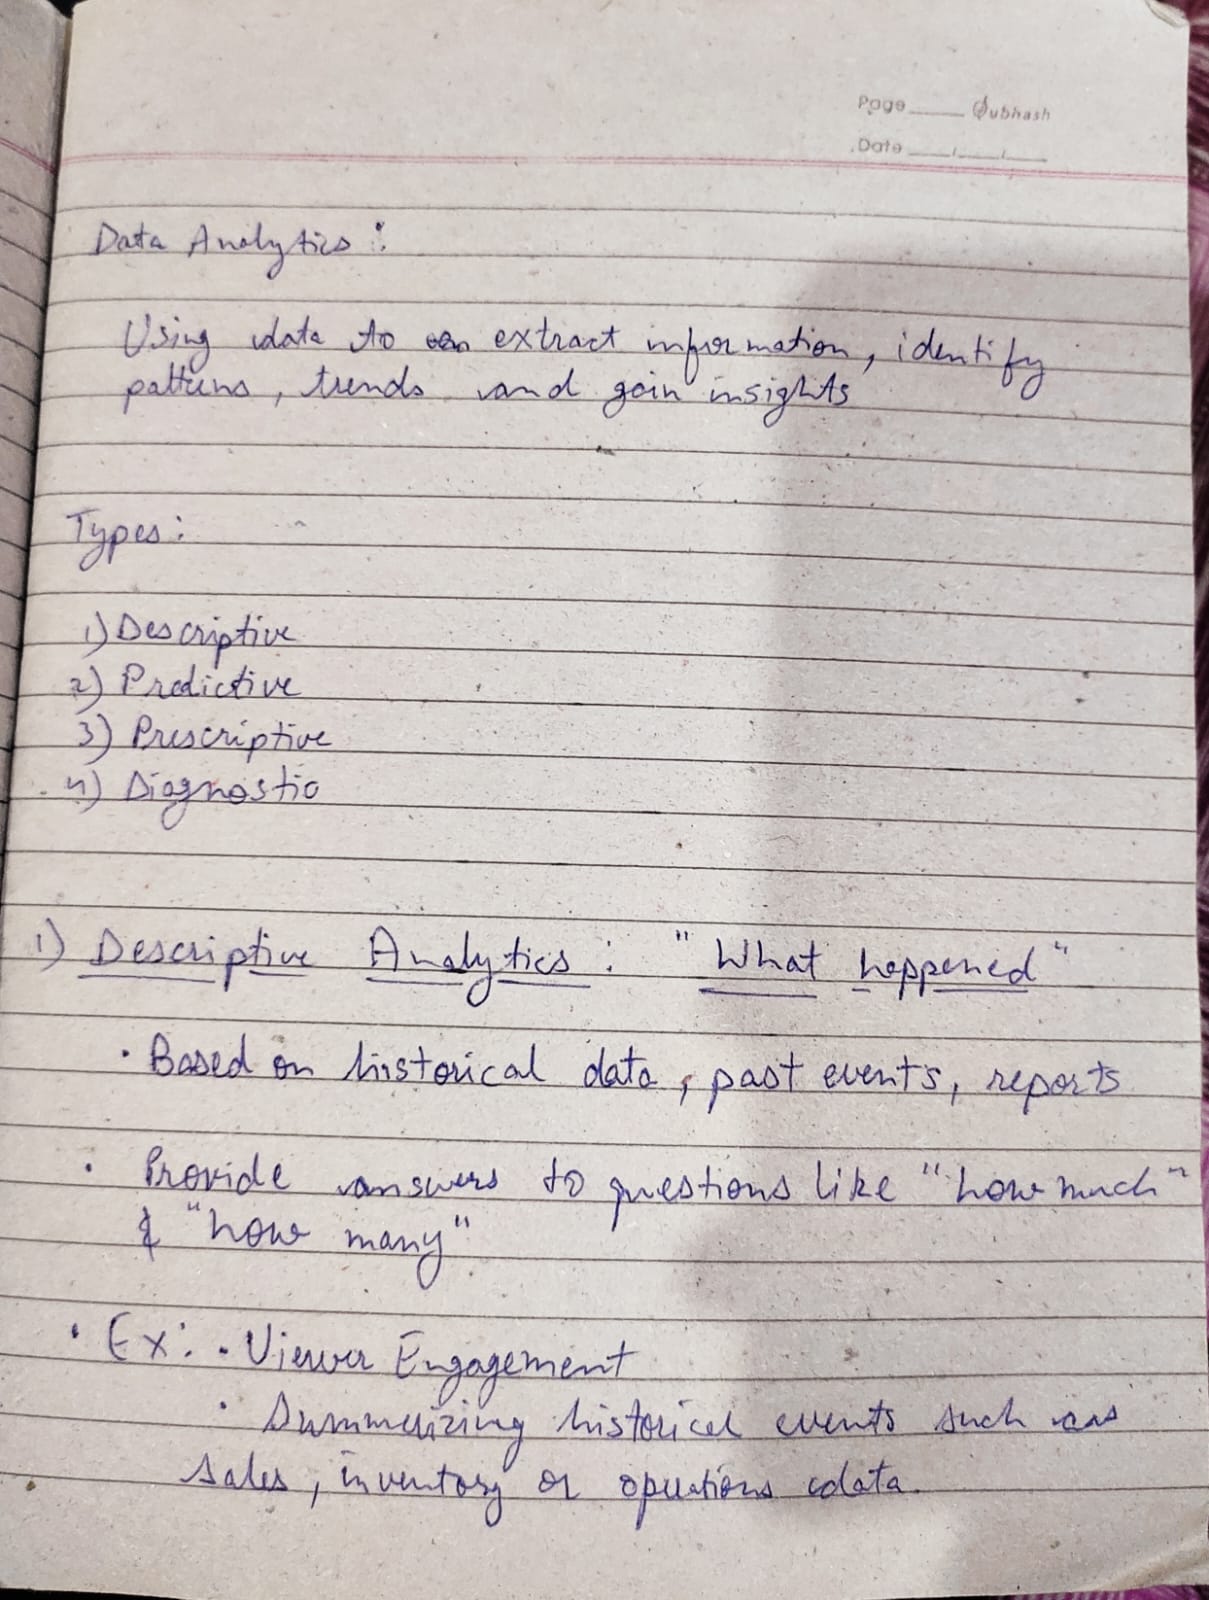 Page Subhash
Date
Data Analytics :
Using data to extract information, identify
patterns, trends and gain insights
Types :
1) Descriptive
2) Predictive
3) Prescriptive
4) Diagnostic
1) Descriptive Analytics : "What happened"
· Based on historical data, past events, reports
· Provide answers to questions like "how much"
& "how many"
· Ex: · Viewer Engagement
· Summerizing historical events such as
sales, inventory or operations data.